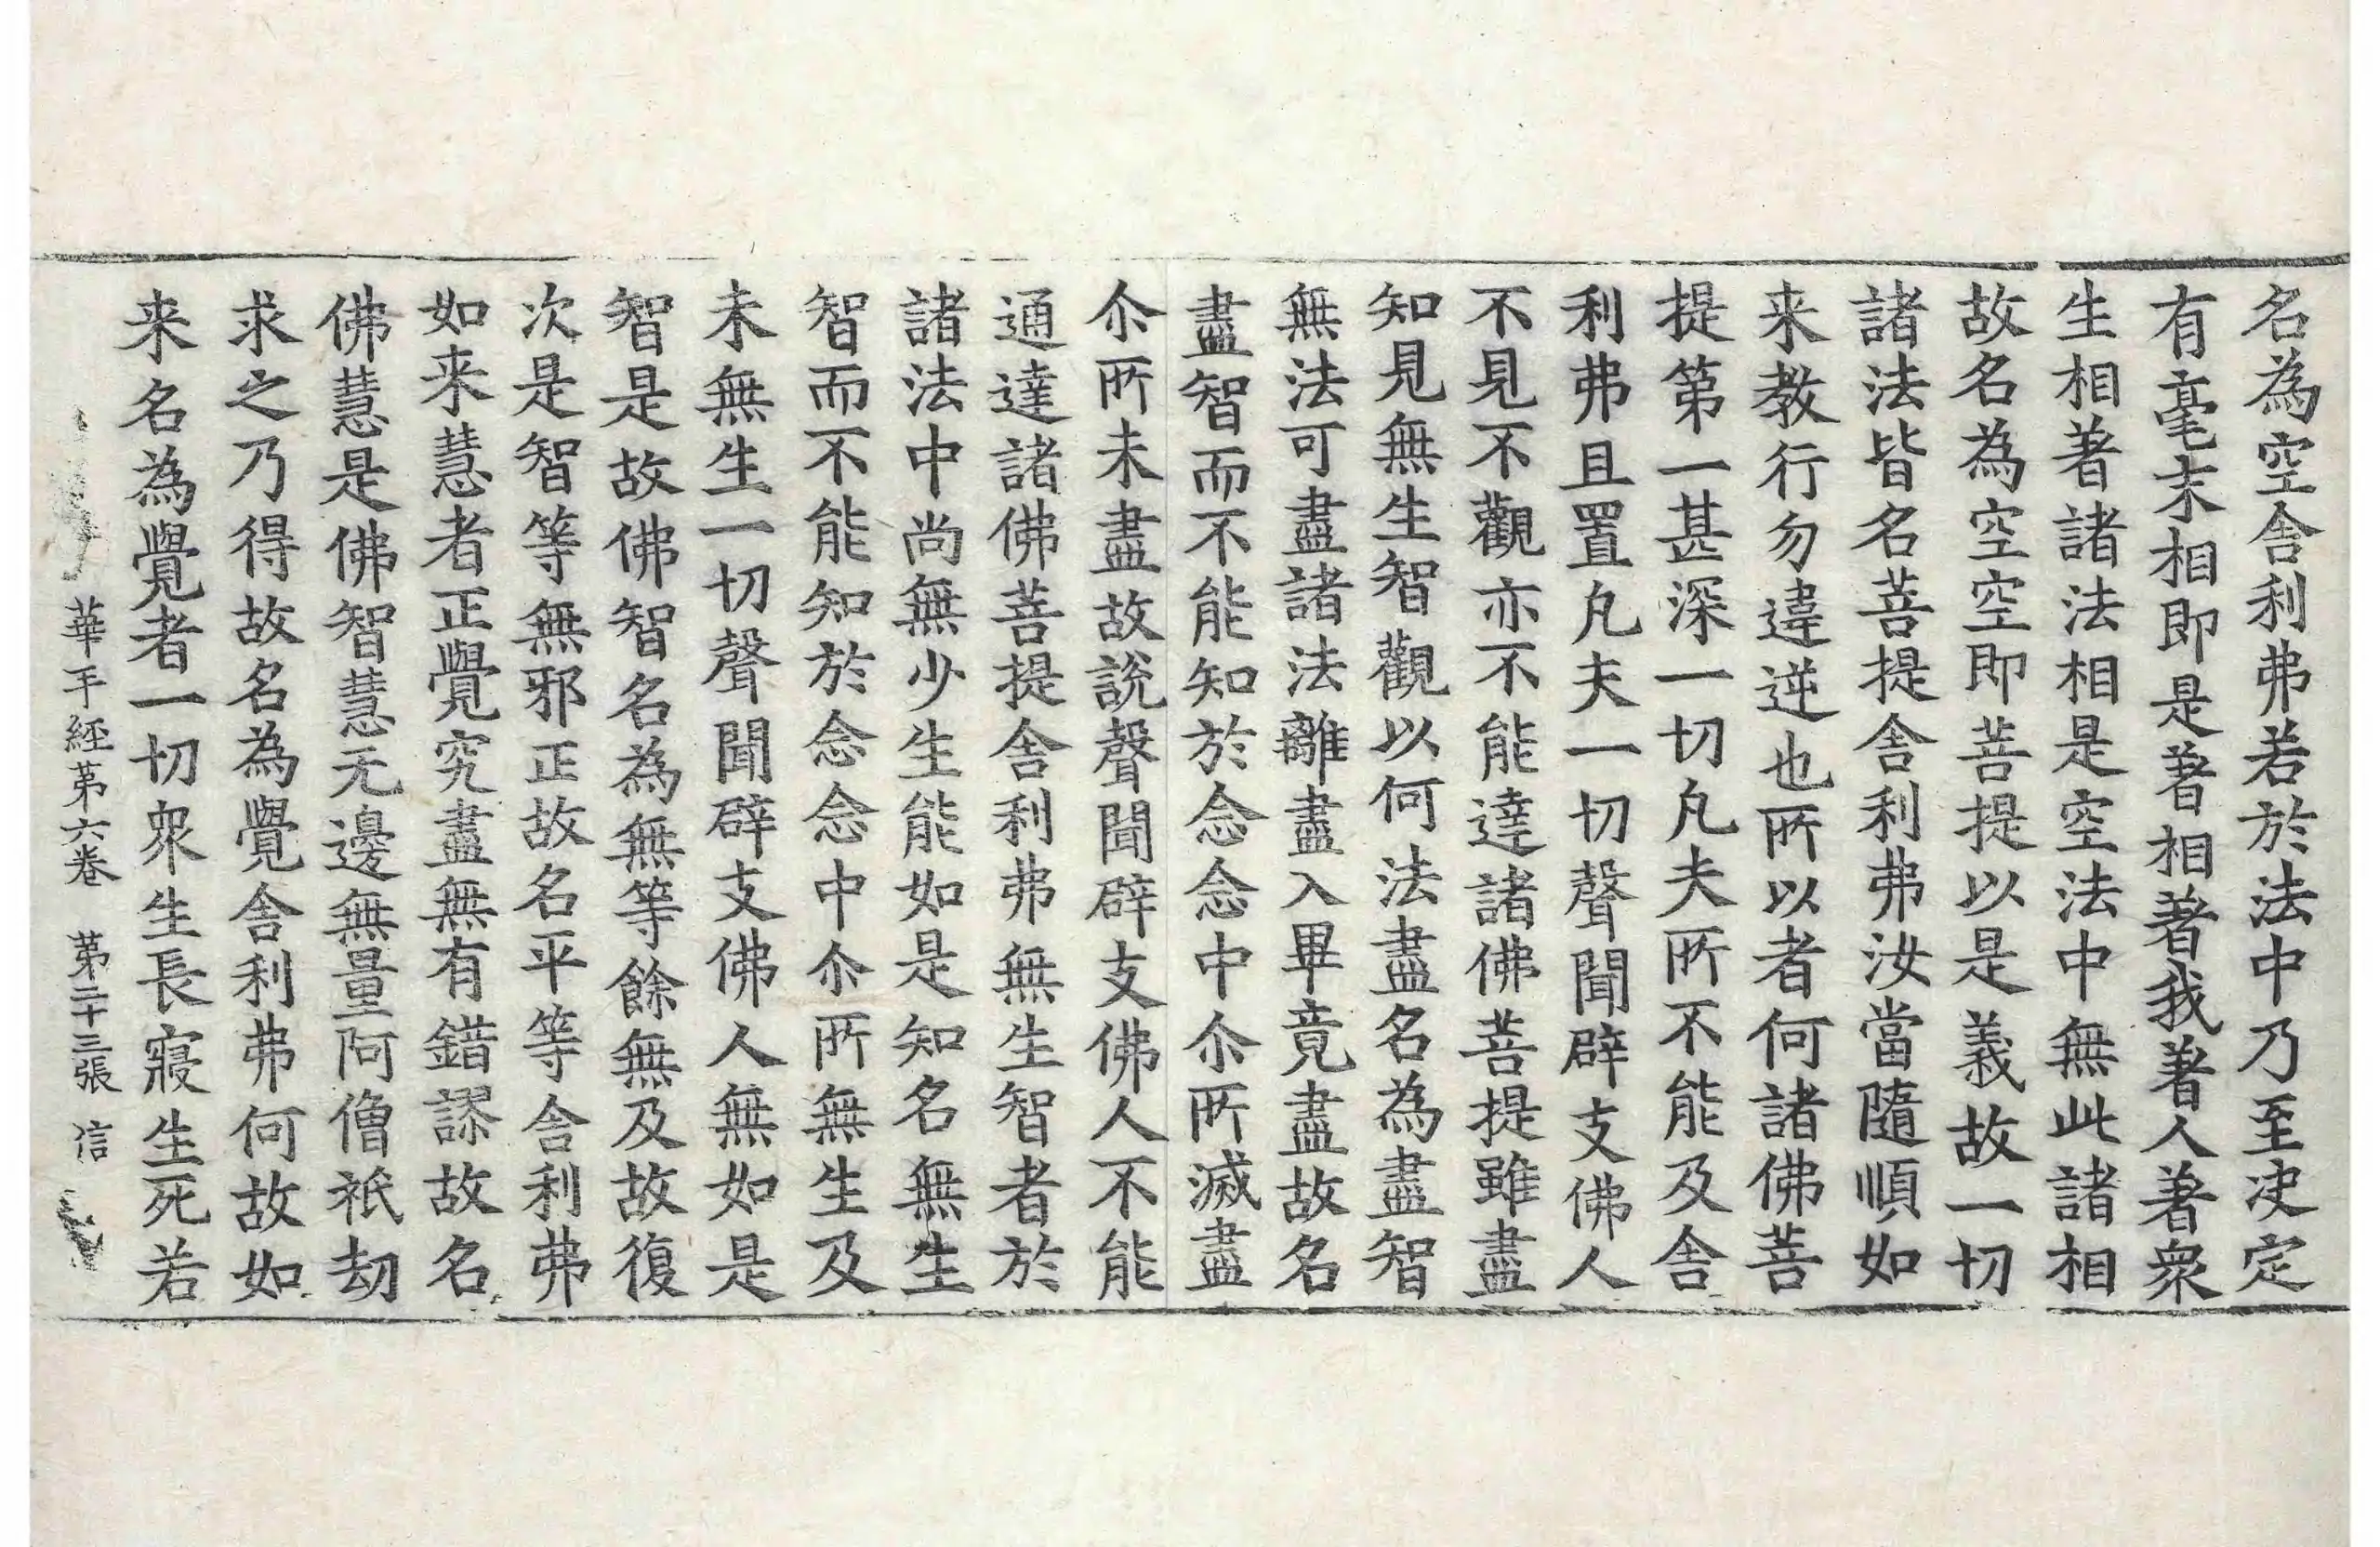 名為空舎利弗若於法中乃至决定
有毫末相即是著相著我著人著衆
生相著諸法相是空法中無此諸相
故名為空空即菩提以是義故一切
諸法皆名菩提舎利弗汝當隨順如
来教行勿違逆也所以者何諸佛菩
提第一甚深一切凡夫所不能及舎
利弗且置凡夫一切聲聞辟支佛人
不見不觀亦不能達諸佛菩提雖盡
知見無生智觀以何法盡名為盡智
無法可盡諸法離盡入畢竟盡故名
盡智而不能知於念念中尒所滅盡
尒所未盡故說聲聞辟支佛人不能
通達諸佛菩提舎利弗無生智者於
諸法中尚無少生能如是知名無生
智而不能知於念念中尒所無生及
未無生一切聲聞辟支佛人無如是
智是故佛智名為無等餘無及故復
次是智等無邪正故名平等舎利弗
如来慧者正覺究盡無有錯謬故名
佛慧是佛智慧无邊無量阿僧祇劫
求之乃得故名為覺舎利弗何故如
来名為覺者一切衆生長寢生死若
華手經第六卷 第二十三張 信